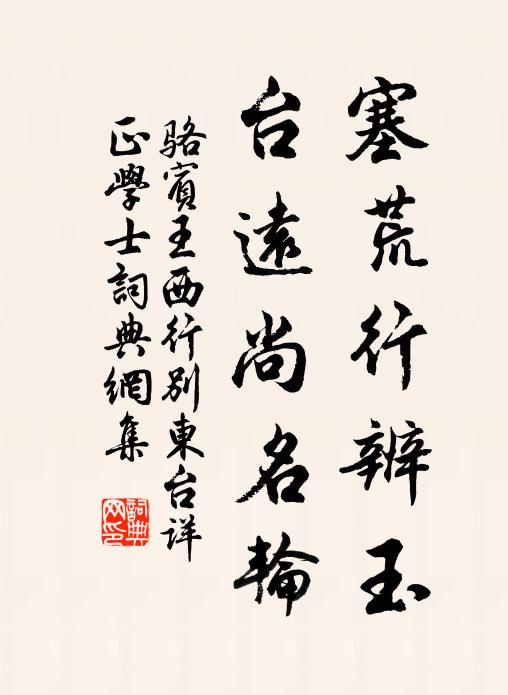 塞荒行辨玉
台遠尚名輪
駱賓王西行別東台详
正學士詞典網集
詞典
网印